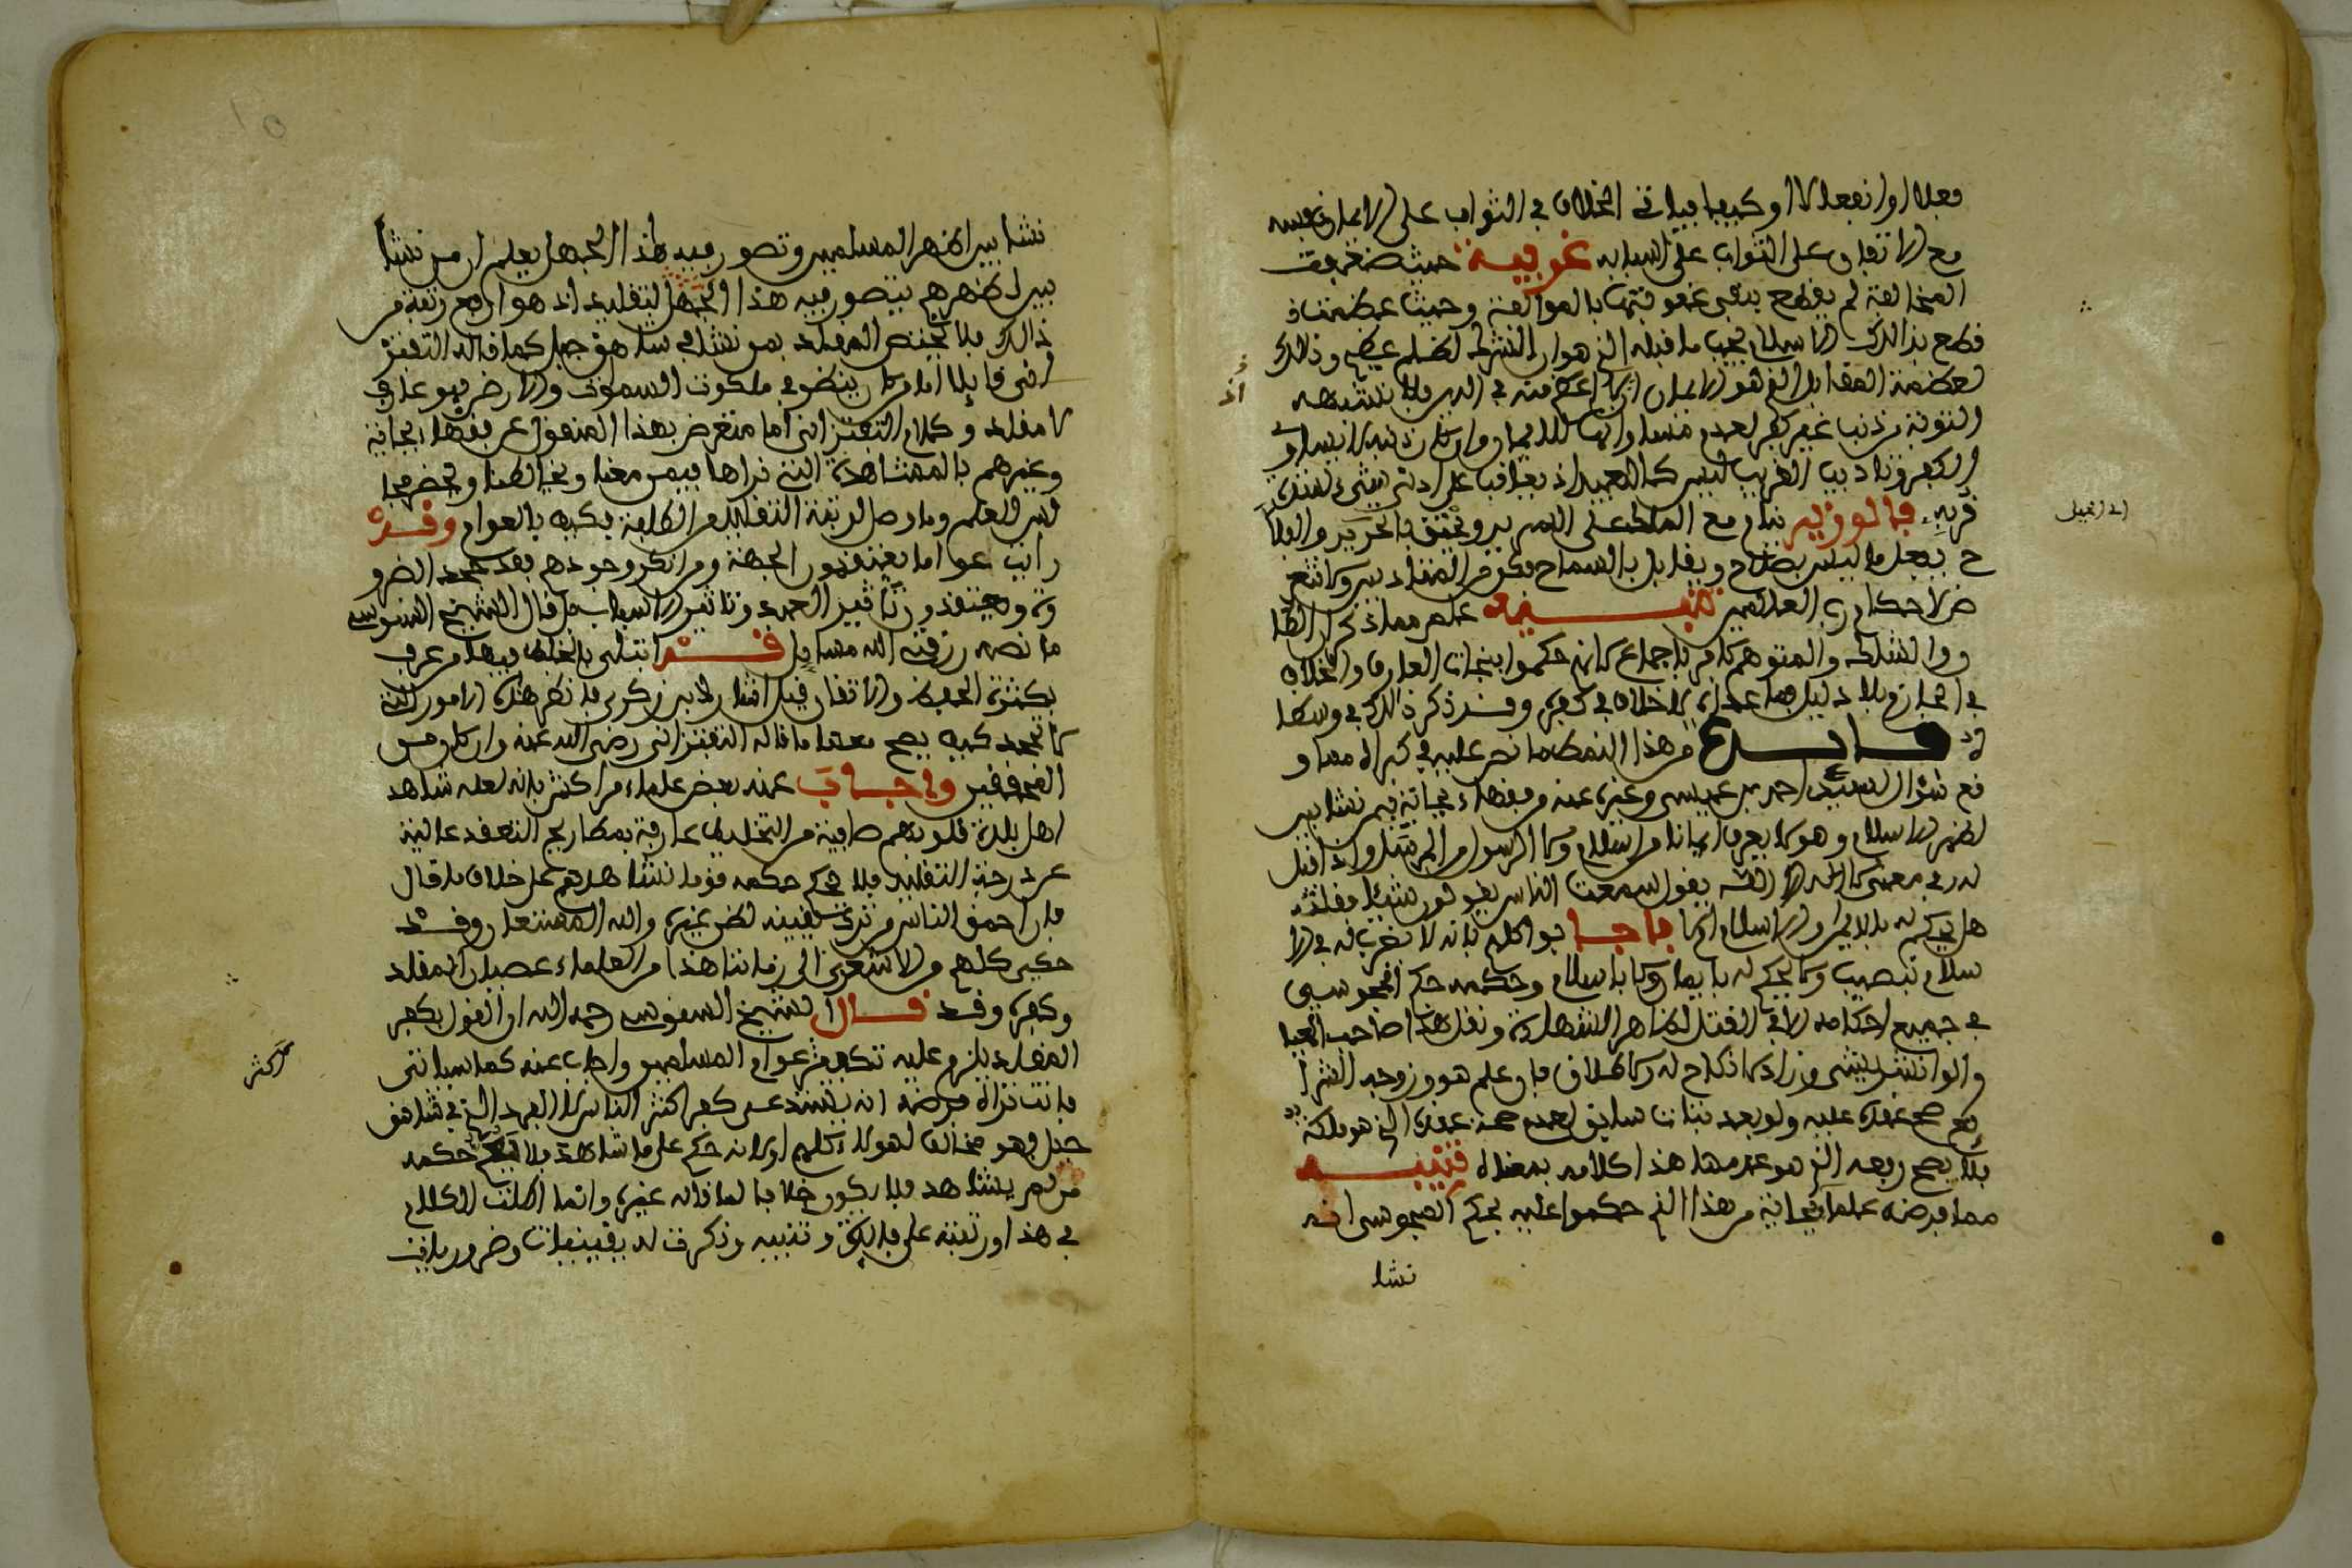 فعلا او انفعالا او كيفا فياتي الخلاف في الثواب على الايمان نفسه
مع الاتفاق على الثواب على اسبابه غريبة حيث ضعفت
المخالفة لم يقطع بنفي عقوبتها بالموافقة وحيث عظمت
قطع بذالك الاسلام يجب ما قبله الذي هو ان الشرك لظلم عظيم وذلك
لعظمة المقابل الذي هو الايمان اعظم منه في الدين فلا تشبهه
التوبة من ذنب غير كفر لعدم مساواتها للايمان وان كان ذنبه لا يساوي
الكفر وتاديب القريب ليس كالبعيد اذ يعاقب على ادنى شيء
قربه فالوزير ينام مع الملك على السرير ويختنق بالحرير والفلاح
ح يفعل ما ليس بصلاح ويقابل بالسماح
تنبيه علم مما ذكر ان الظان
والشاك والمتوهم كافر باجماع لانهم حكموا بنجات العارف والخلاف
في الجازم بلا دليل فما عداه لا خلاف في كفره وقد ذكر ذالك في وسطا
فائدة من هذا النمط ما نص عليه في كبراه مما و
قع سؤال السيد احمد بن عيسى وغيره عنه من فقهاء بجاية فيمن نشا بين
اظهر الاسلام وهو لا يعرف ايمانا من اسلام ولا الرسول من المرسل واذا قيل
له في معنى لا اله الا الله يقول سمعت الناس يقولون شيئا فقلته
هل يحكم له بالايمان والاسلام ام لا فاجابوا كلهم بانه لا يضرب له في الا
سلام بنصيب ولا يحكم له بايمان ولا باسلام وحكمه حكم المجوسي
في جميع احكامه الا في القتل لظاهر الشهادة ونقل هذا صاحب المعيار
والوانشريشي وزاد لا نكاح له ولا طلاق فان علم هو وزوجه الشرا
يع صح عقده عليه ولو بعد بتات سابق لعدم صحة عقده الذي هو ملكة
فلا يصح رفعه الذي هو عدمها هذا كلامه بمعناه تنبيه
مما فرضه علماء بجاية من هذا الذي حكموا عليه بحكم المجوسي انه
نشا
نشا بين اظهر المسلمين وتصور فيه هذا الجهل يعلم ان من نشا
بين اظهرهم يتصور فيه هذا الجهل لتقليد اذ هو ارفع رتبة من
ذالك فلا يختص المقلد بمن نشا في شاهق جبل كما قاله التفتز
اني قايلا اما من كان ينظر في ملكوت السموات والارض فهو عارف
لا مقلد وكلام التفتزاني اما متعرض بهذا المنقول عن فقهاء بجاية
وغيرهم بالمشاهدة التي نراها فيمن معنا ويخالطنا ويحضر مجا
لس العلم وما وصل لرتبة التقليد من الطلبة فكيف بالعوام وقد
رايت عواما يعتقدون الجهة ومن انكر وجودهم فقد جحد الضرو
رة ويعتقدون تاثير العبد وتاثير الاسباب بل قال الشيخ السنوسي
ما نصه رزقنا الله مسايل قد ابتلى بالخلط فيها من عرف
بكثرة الحفظ والاتقان قيل اشار لابن زكري فانظر هذه الامور التي
لا تجحد كيف يصح معها ما قاله التفتزاني رضي الله عنه وان كان من
المحققين واجاب عنه بعض علماء مراكش بانه لعله شاهد
اهل بلدة قلوبهم صافية من التخليط عارفة بمطارح التعقد عالية
عن درجة التقليد فلا يحكم حكمه قوما نشاهدهم على خلاف ما قال
فان احمق الناس من ترك يقينه لظن غيره والله المستعان وقد
حكى كلهم من الاشعري الى زماننا هذا من العلماء عصيان المقلد
وكفره وقد قال الشيخ السنوسي رحمه الله ان القول بكفر
المقلد يلزم عليه تكفير عوام المسلمين واجاب عنه كما سياتي
فانت تراه فرضه انه يستدعي كفر اكثر الناس لا الفرد الذي في شاهق
جبل وهو مخالف لهولاء كلهم او لانه حكم على ما شاهده فلا يعم حكمه
من لم يشاهد فلا يكون خلافا لما قاله غيره وانما اطلت الكلام
في هذا اورتبته على فايدة وتنبيه وذكرت له يقينيات وضروريات